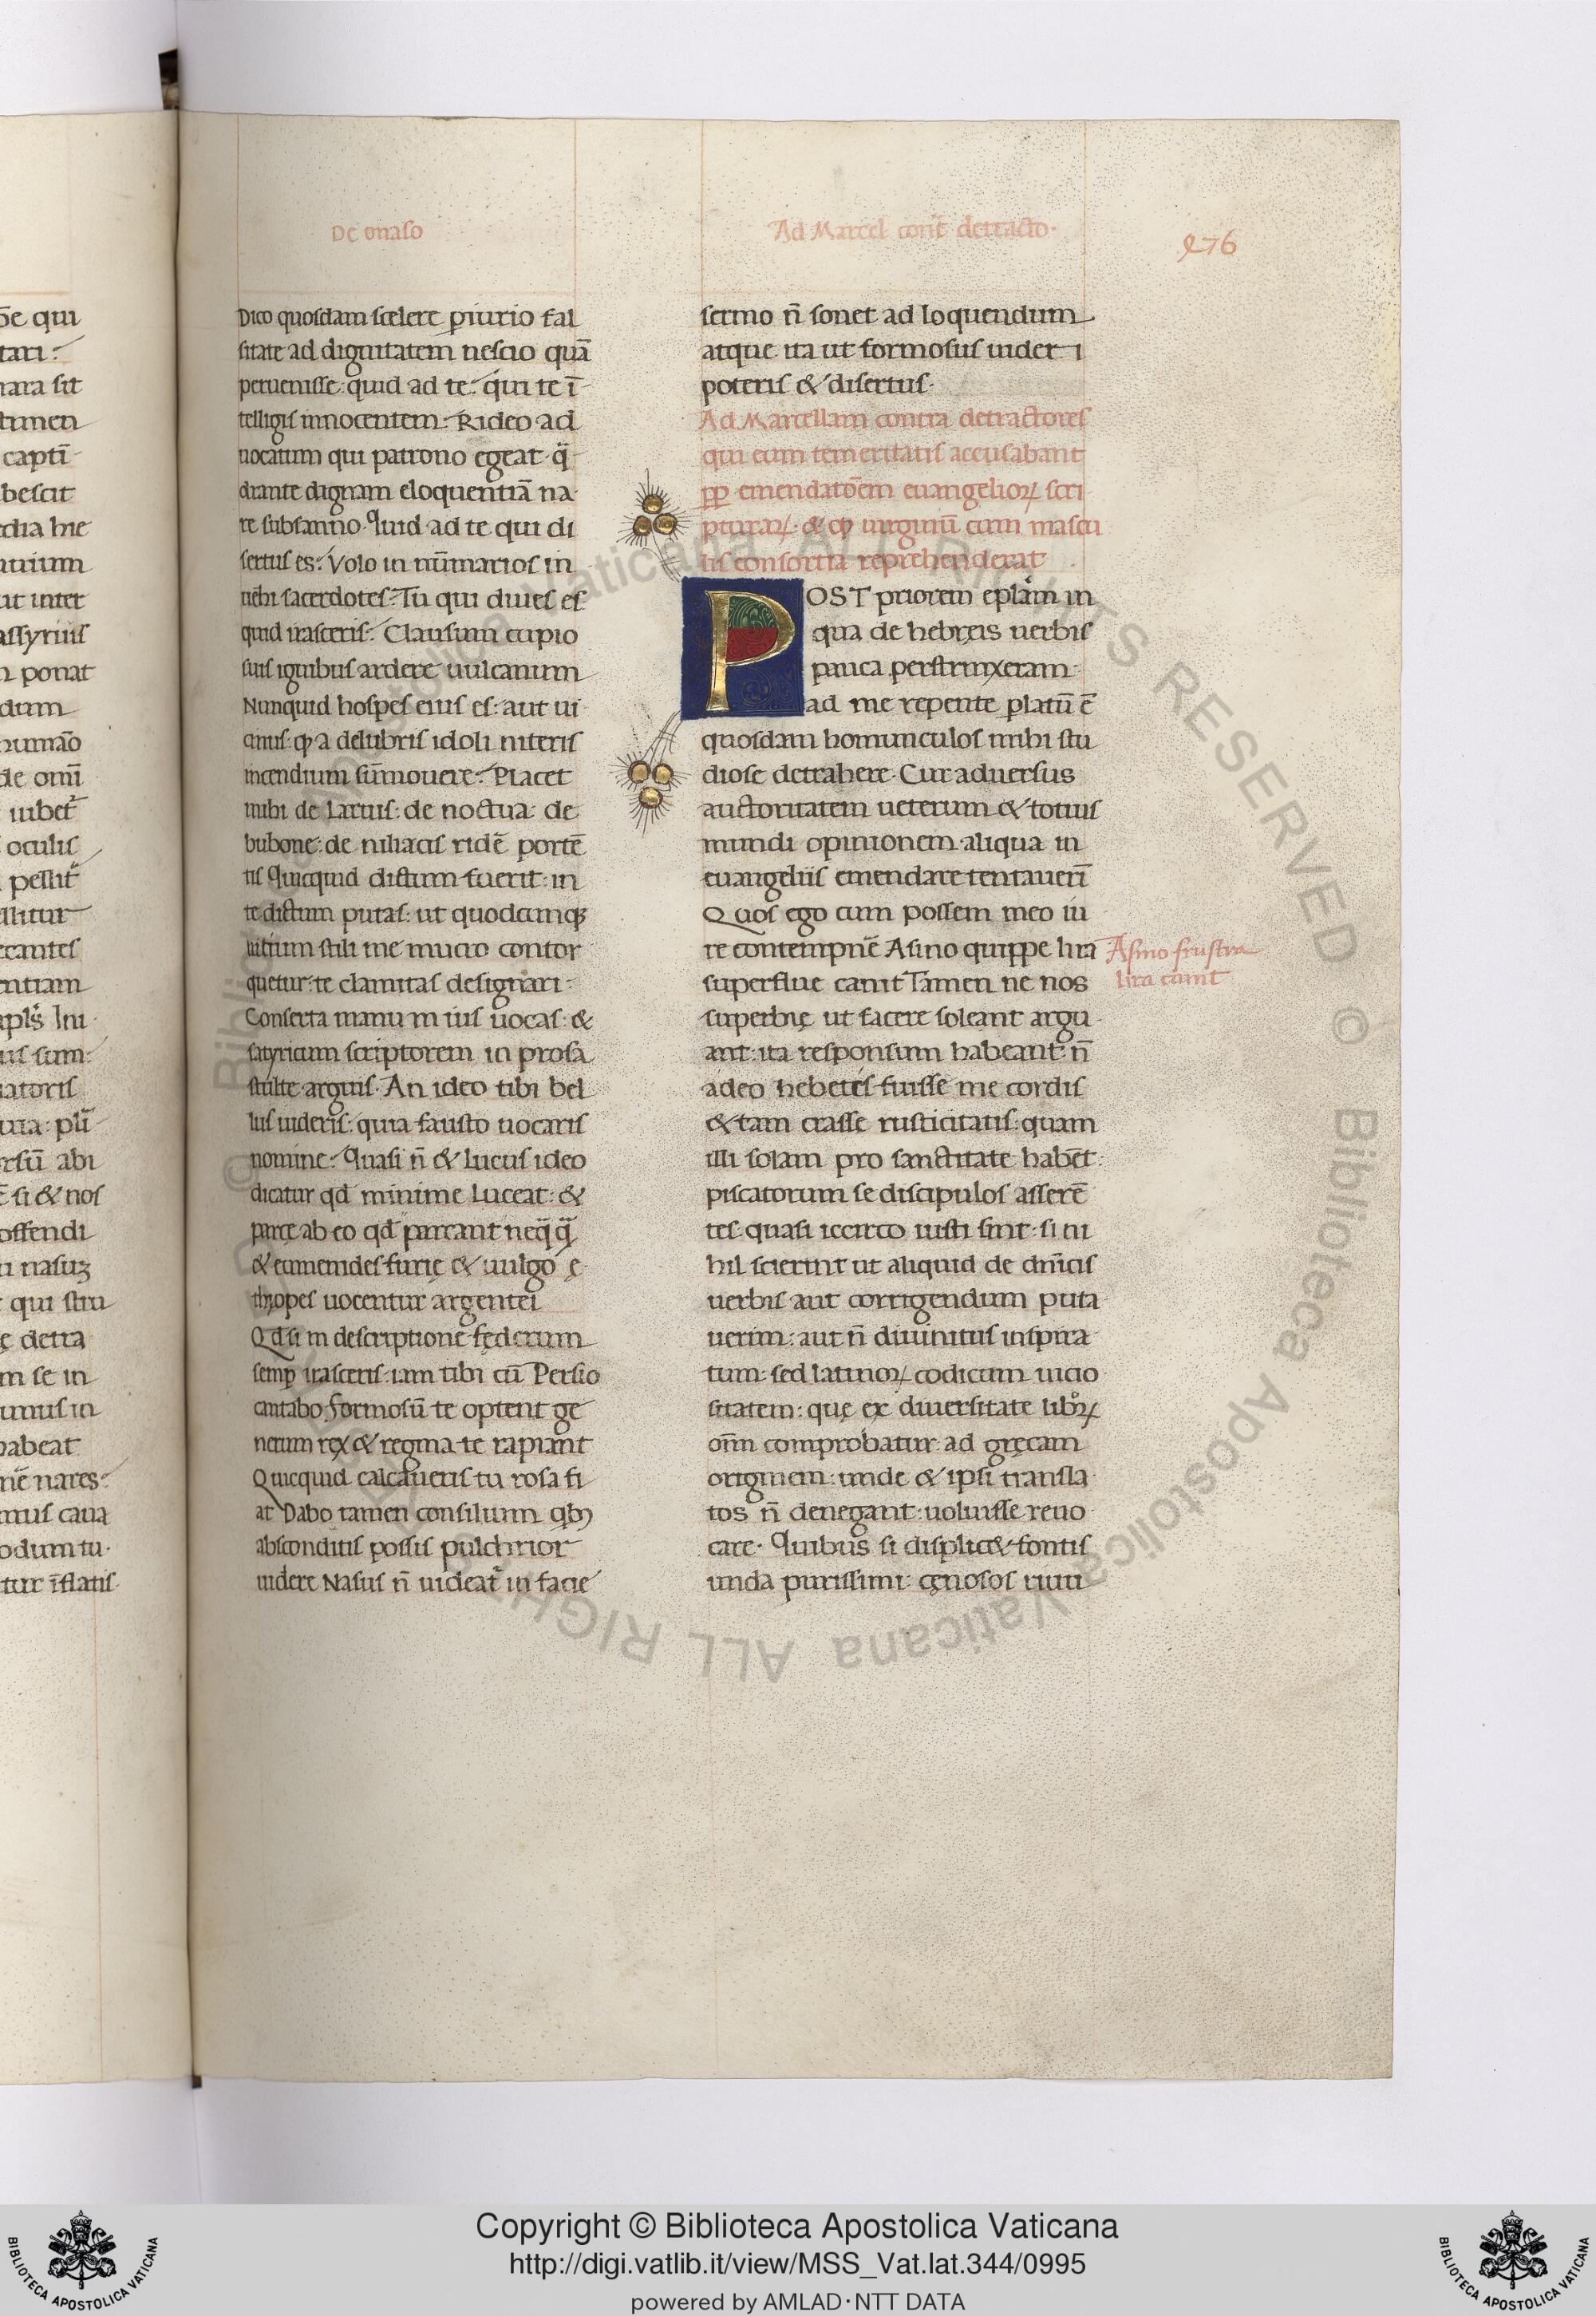 De onaso
Dico quosdam scelere piurio fal
sitate ad dignitatem nescio quā
peruenisse: quid ad te: qui te ī
telligis innocentem: Rideo ad
uocatum qui patrono egeat: q̄
drante dignam eloquentiā na
re subsanno. Quid ad te qui di
sertus es: Volo in nūmarios in
uehi sacerdotes: Tu qui diues es
quid irasceris: Clausum cupio
suis ignibus ardere uulcanum
Nunquid hospes eius es: aut ui
cinus: qp a delubris idoli niteris
incendium sūmouere: Placet
mihi de Laruis: de noctua: de
bubone: de niliacis ridē portē
tis Quicquid dictum fuerit: in
te dictum putas: ut quodcunq;
uitium stili me mucro contor
quetur: te clamitas designari:
Conserta manu in ius uocas: &
satyricum scriptorem in prosa
stulte arguis. An ideo tibi bel
lus uideris: quia fausto uocaris
nomine: Quasi n̄ & Lucus ideo
dicatur qd minime Luceat: &
parcę ab eo qd parcant neq̄q̄
& eumenides furię & uulgo ę
thyopes uocentur argentei
Qd si in descriptione fędorum
semp irasceris: iam tibi cū Persio
cantabo. Formosū te optent ge
nerum rex & regina te rapiant
Quicquid calcaueris tu rosa fi
at Dabo tamen consilium qb3
absconditis possis pulchrior
uidere Nasus n̄ uideat̄ in facie
Ad Marcel cont̄ detracto.
476
sermo n̄ sonet ad loquendum
atque ita ut formosus uideri
poteris & disertus.
Ad Marcellam contra detractores
qui eum temeritatis accusabant
pp emendatōem euangelioꝝ scri
pturaꝝ. & qp uirginū cum mascu
lis consortia reprehenderat
POST priorem eplām in
qua de hebręis uerbis
pauca perstrinxeram:
ad me repente platū ē
quosdam homunculos mihi stu
diose detrahere. Cur aduersus
auctoritatem ueterum & totius
mundi opinionem aliqua in
euangeliis emendare tentauerī
Quos ego cum possem meo iu
re contempnē Asino quippe lira
superflue canit Tamen ne nos
superbię ut facere soleant argu
ant: ita responsum habeant: n̄
adeo hebetes fuisse me cordis
& tam crasse rusticitatis: quam
illi solam pro sanctitate habēt:
piscatorum se discipulos asserē
tes: quasi iccirco iusti sint: si ni
hil scierint ut aliquid de dn̄icis
uerbis aut corrigendum puta
uerim: aut n̄ diuinitus inspira
tum: sed latinoꝝ codicum uicio
sitatem: quę ex diuersitate libroꝝ
oīm comprobatur: ad gręcam
originem: unde & ipsi transla
tos n̄ denegant: uoluisse reuo
care. Quibus si displicet fontis
unda purissimi: cęnosos riuu
Asino frustra
lira canit
ALL RIGHTS RESERVED © Biblioteca Apostolica Vaticana
Copyright © Biblioteca Apostolica Vaticana
http://digi.vatlib.it/view/MSS_Vat.lat.344/0995
powered by AMLAD·NTT DATA
BIBLIOTECA APOSTOLICA VATICANA
BIBLIOTECA APOSTOLICA VATICANA